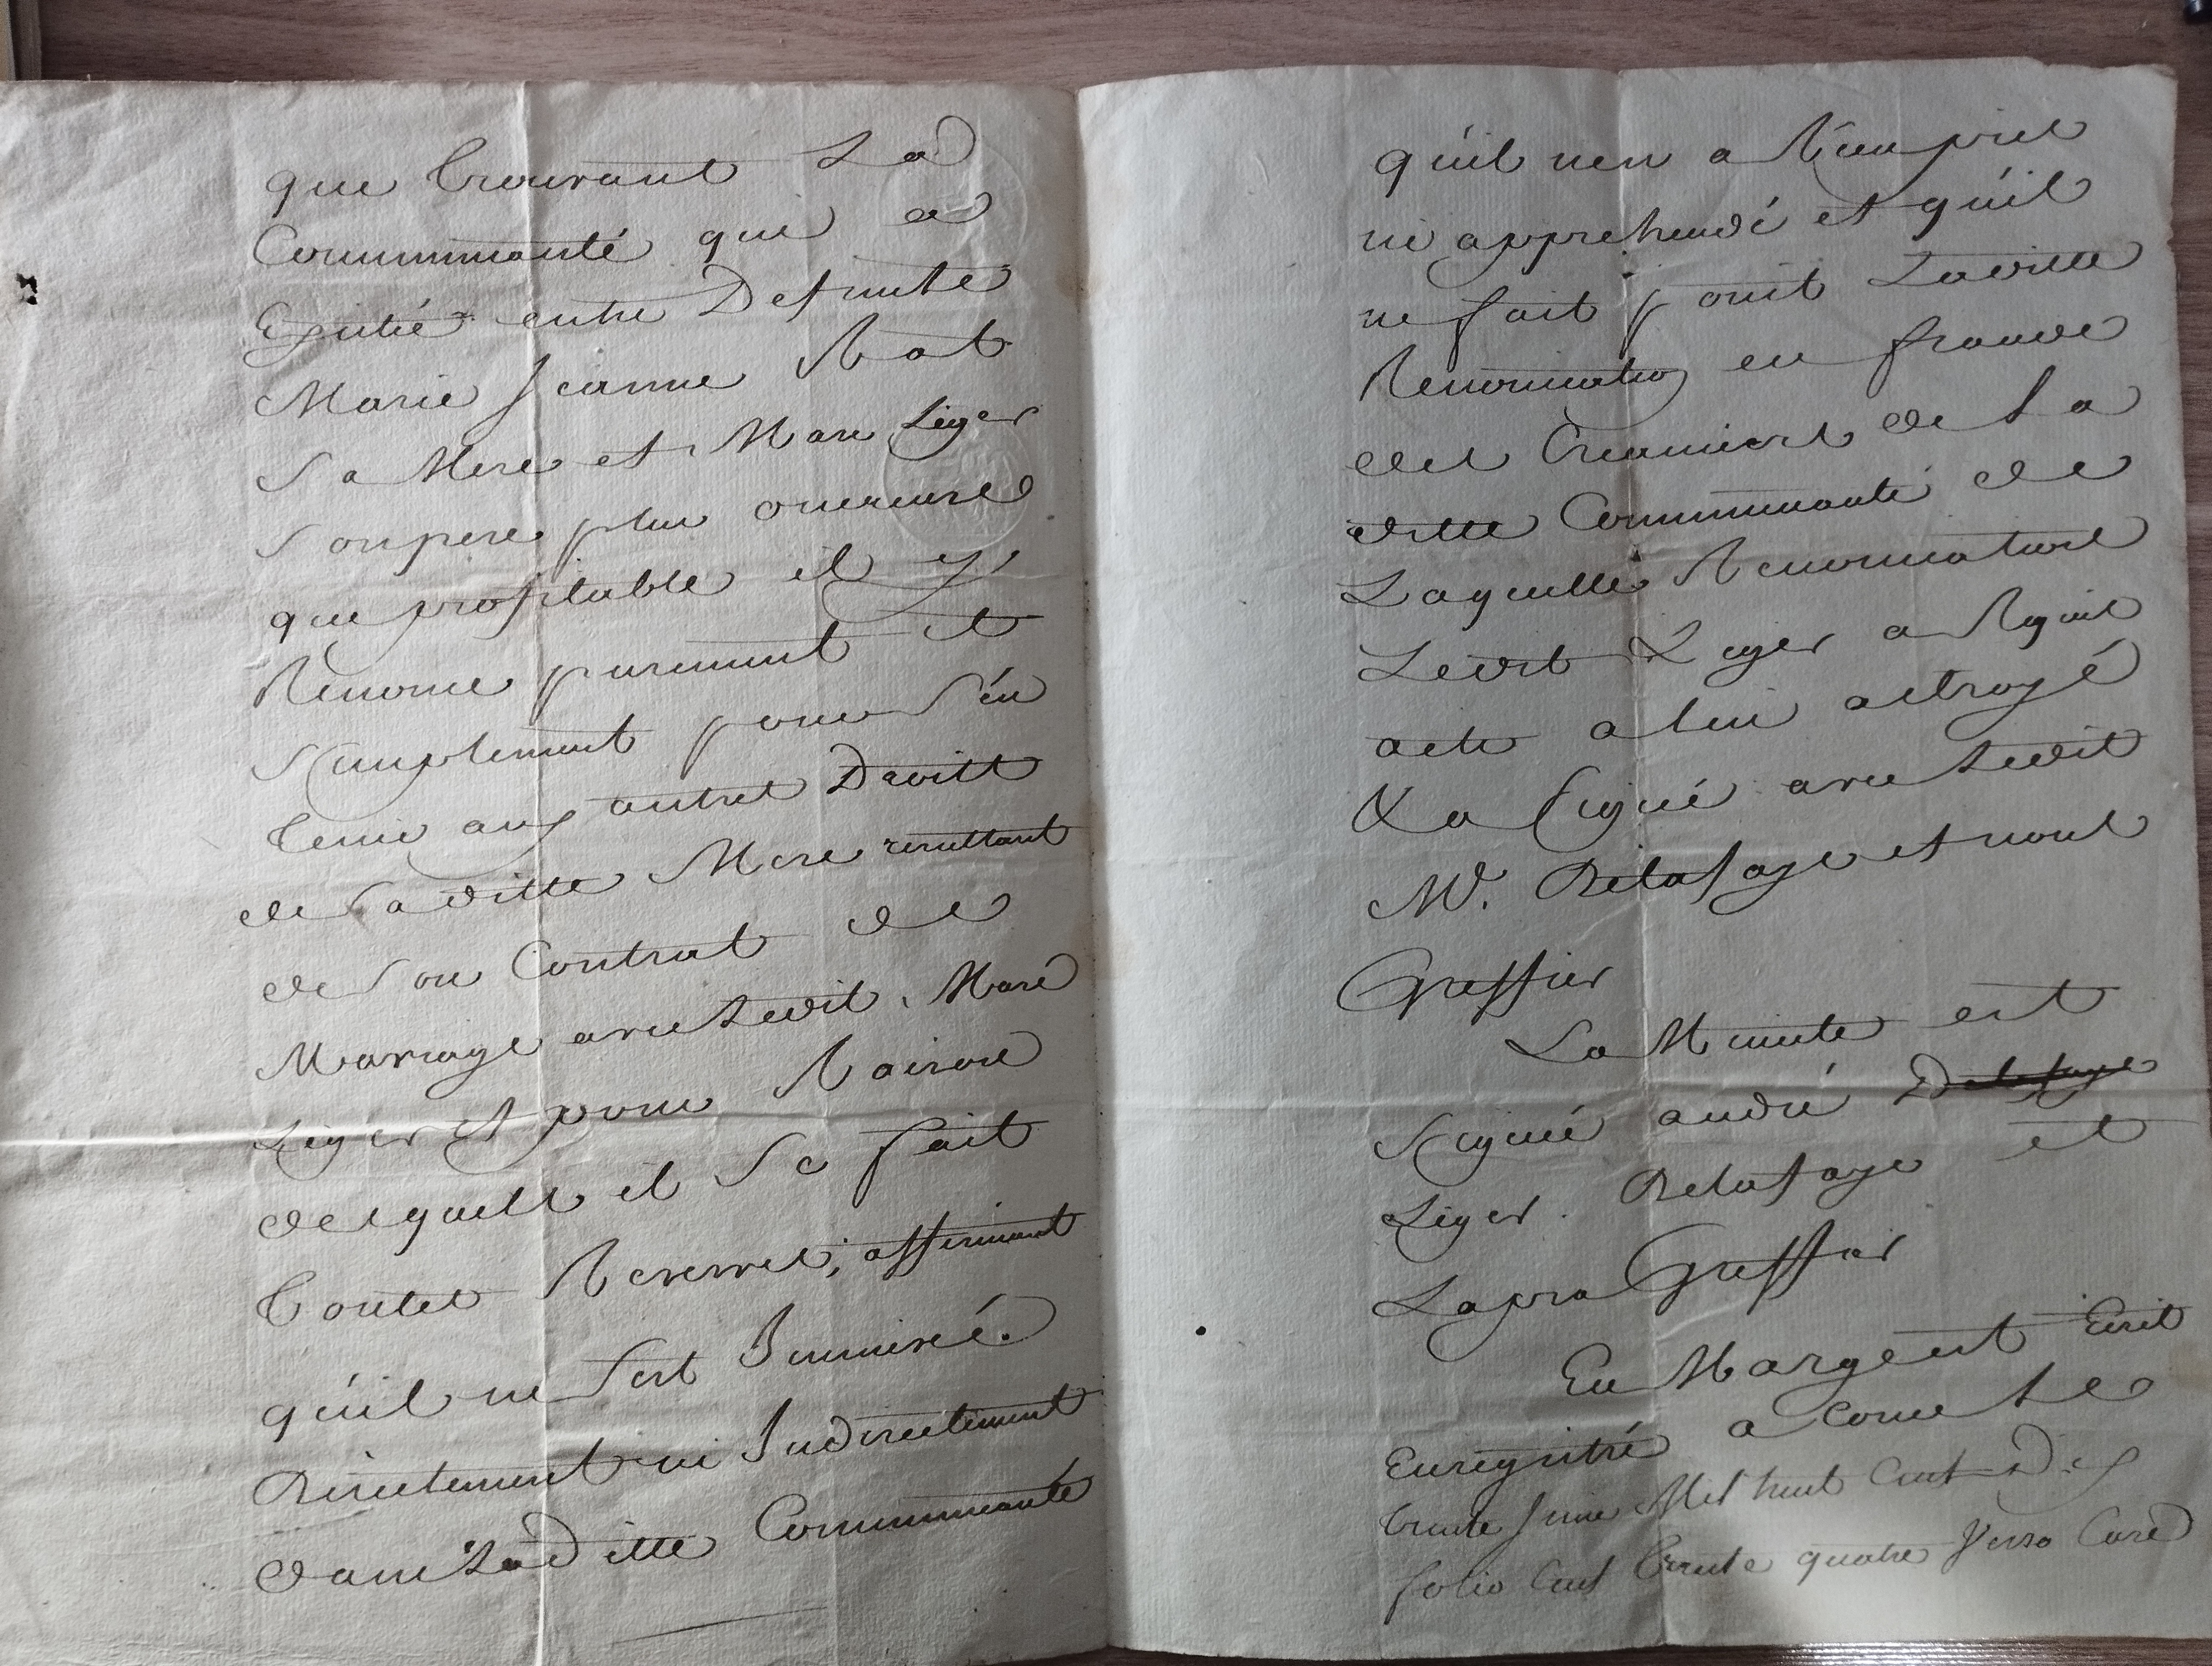 que trouvant La
Communauté qui a
Existé entre Defunte
Marie Jeanne Rat
Sa Mere et Marc Leger
Son pere plus onereuse
que profitable il y
Renonce purement et
Simplement pour S'en
tenir aux autres Droits
de Saditte Mere resultant
de Son Contrat de
Mariage avec Ledit Marc
Leger et pour Raison
desquels il Se fait
toutes Reserves, affirmant
qu'il ne S'est Immisré
Directement ni Indirectement
dans LaDitte Communauté
qu'il n'en a Rien pris
ni apprehendé et qu'il
ne fait point Laditte
Renonciation en fraude
des Creanciers de La
ditte Communauté de
Laquelle Renonciation
Ledit Leger a Requis
acte a lui octroyé
& a Signé avec Ledit
Mr. Delafaye et nous
Greffier
La Minute est
Signé andré Delafaye
Leger. Delafaye et
Lapra Greffier
En Marge est Ecrit
Enregistré a Le
trente Juin Mil huit Cent Dix
folio Cent trente quatre Verso Case